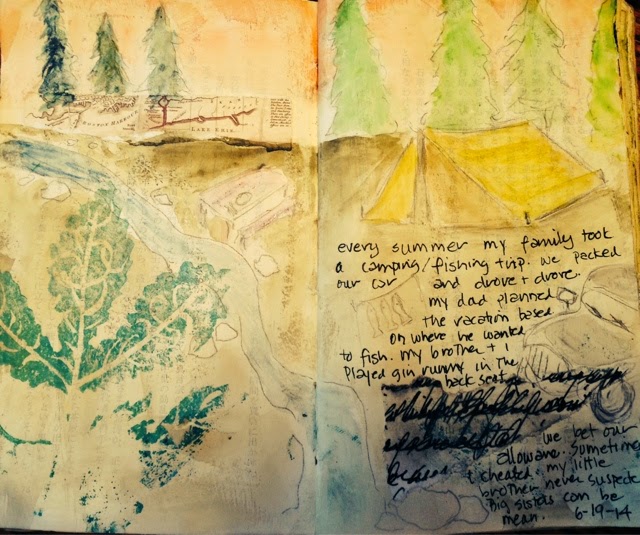 BOSTON HARBOUR
LAKE ERIE
every summer my family took
a camping/fishing trip. we packed
our car and drove + drove.
my dad planned
the vacation based
on where he wanted
to fish. my brother + I
played gin rummy in the
back seat.
we bet our
allowance. Sometimes
I cheated. my little
brother never suspected
Big sisters can be
mean. 6-19-14